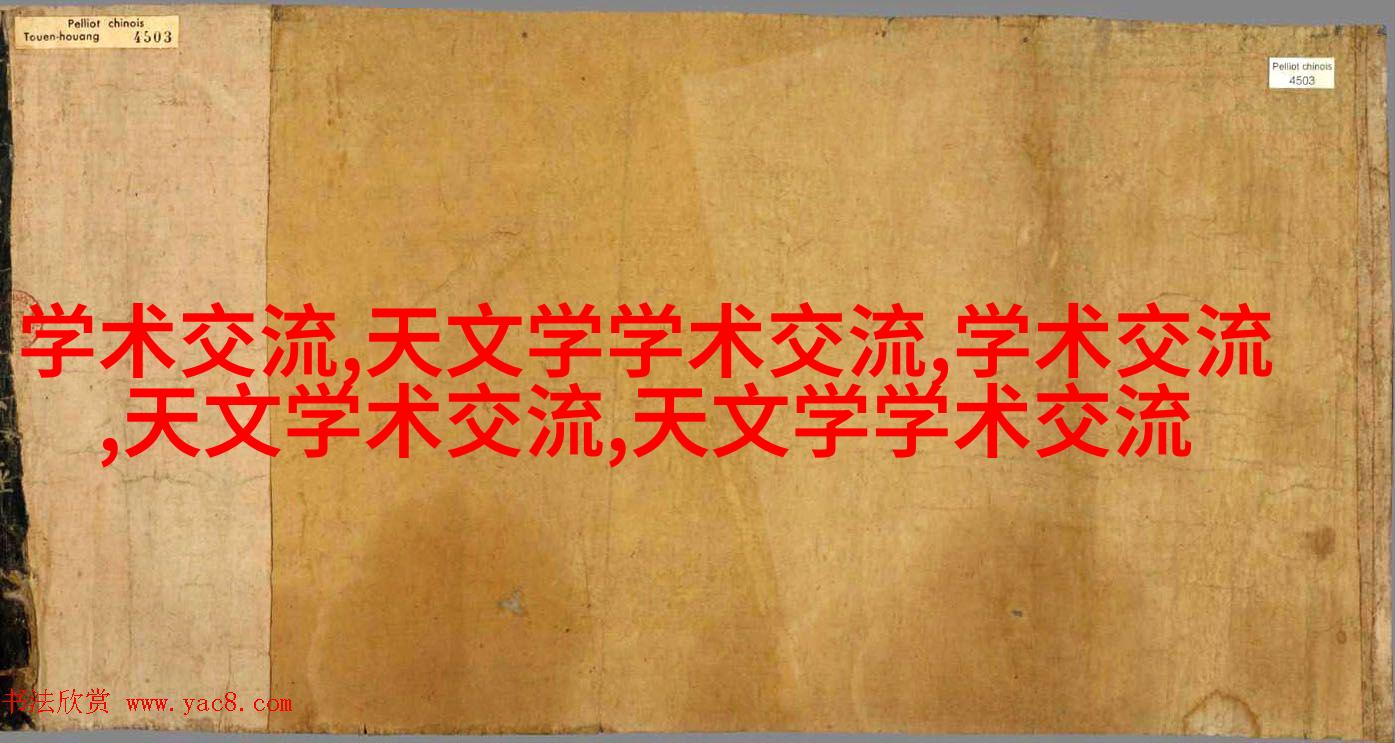 Pelliot chinois
Touen-houang 4503
Pelliot chinois
4503
学术交流,天文学学术交流,学术交流
,天文学术交流,天文学学术交流
书法欣赏 www.yac8.com